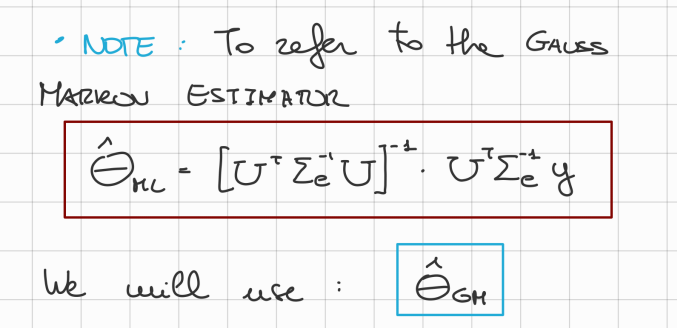 • NOTE : To refer to the GAUSS
MARKOV ESTIMATOR
Θ̂_ML = [U^T Σ_e^-1 U]^-1 · U^T Σ_e^-1 y
We will use : Θ̂_GM